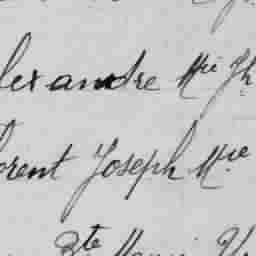 lexandre Mrie Jh
lorent Joseph Mrie
Bte Marie